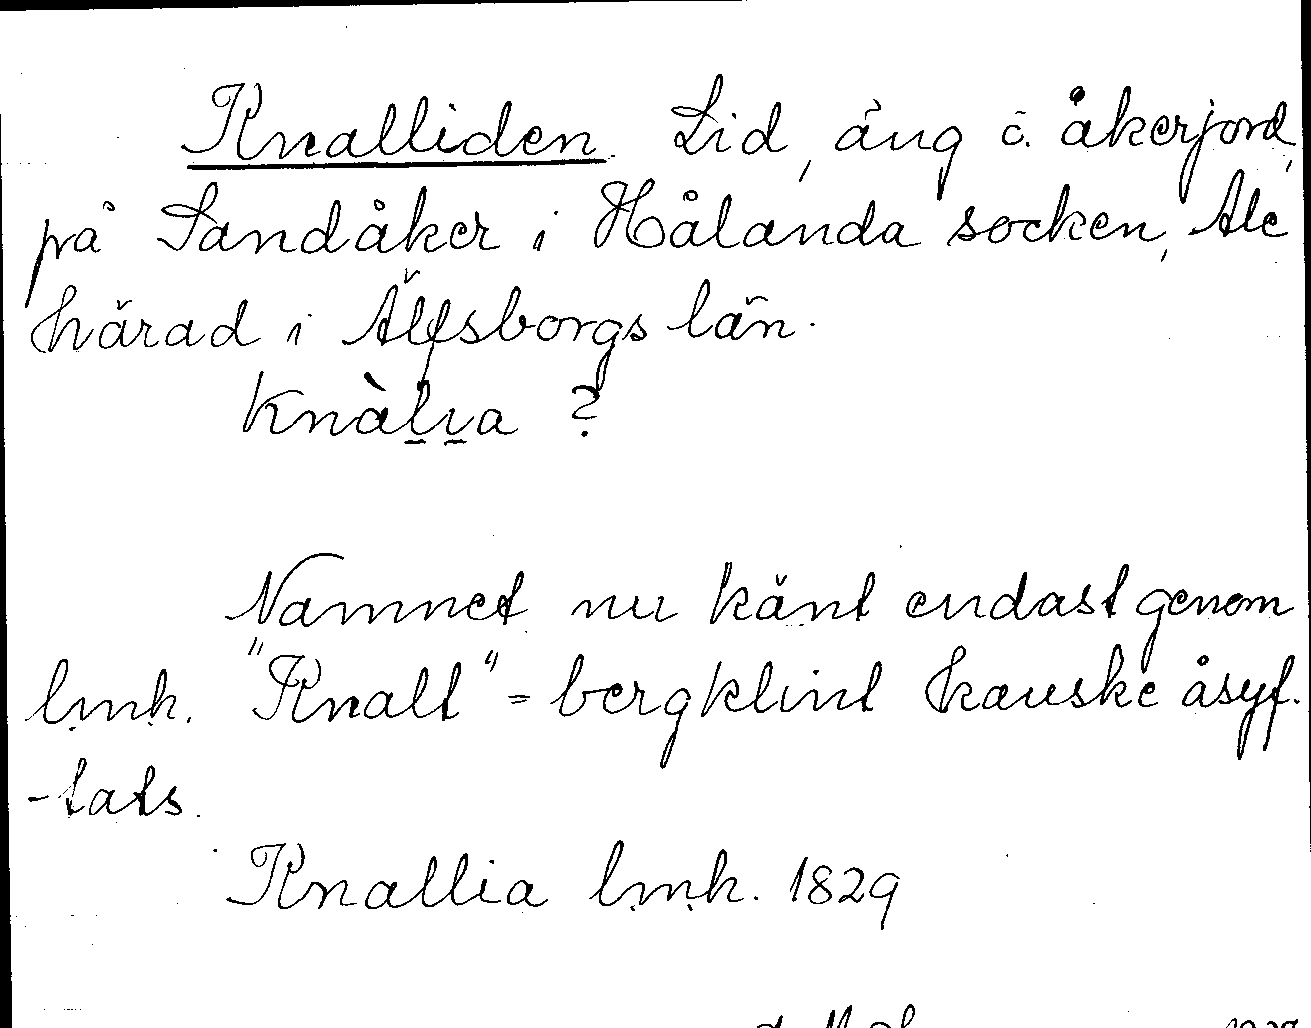 Knalliden. Lid, äng o. åkerjord,
på Sandåker i Hålanda socken, Ale
härad i Älfsborgs län.
Knàl̠ı̠a ?
Namnet nu känt endast genom
lmh. "Knall" = bergklint kanske åsyf.
-tats.
Knallia lmh. 1829